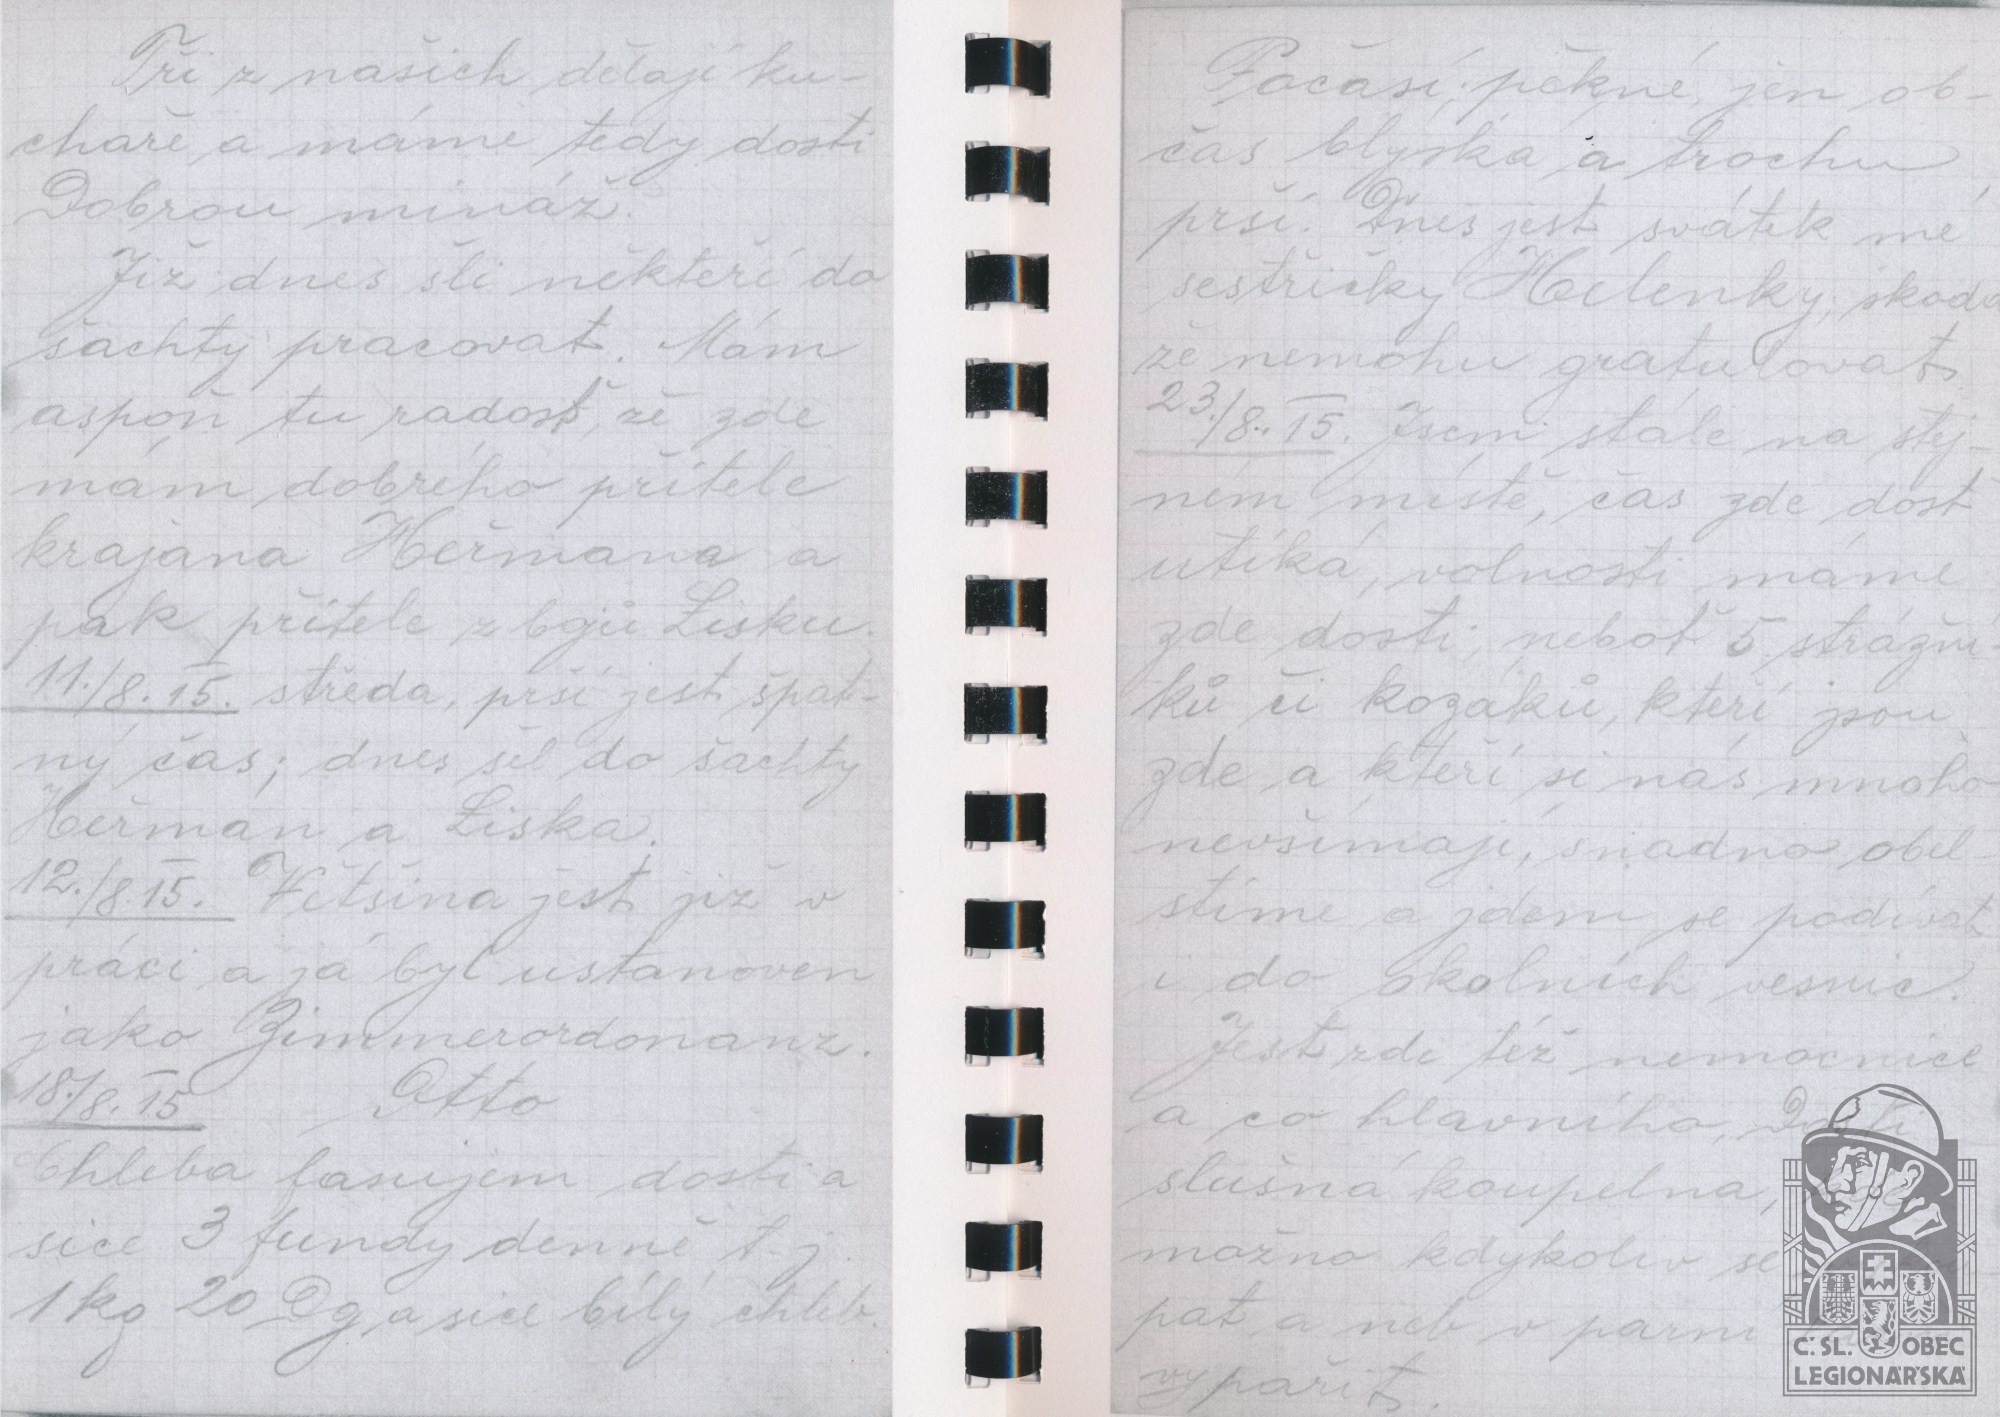 Tři z našich dělají ku-
chaře a máme tedy dosti
Dobrou mináž.
Již dnes šli někteří do
šachty pracovat. Mám
aspoň tu radost, že zde
mám dobrého přítele
krajana Heřmana a
pak přítele z bojů Lisku.
11./8. 15. středa, prší jest špat-
ný čas; dnes šel do šachty
Heřman a Liska.
12./8. 15. Většina jest již v
práci a já byl ustanoven
jako Zimmerordonanz.
18./8. 15 Otto
Chleba fasujem dosti a
sice 3 fundy denně t. j.
1 kg 20 Dg a sice bílý chleb.
Počasí pěkné, jen ob-
čas blýská a trochu
prší. Dnes jest svátek mé
sestřičky Helenky, škoda
že nemohu gratulovat.
23./8. 15. Jsem stále na stej-
ném místě, čas zde dost
utíká, volnosti máme
zde dosti, neboť 5 strážní-
ků či kozáků, kteří jsou
zde a kteří si nás mnoho
nevšímají, snadno obel-
stíme a jdem se podívat
i do okolních vesnic.
Jest zdi též nemocnice
a co hlavního, Dosti
slušná koupelna,
možno kdykoliv se
pat a neb v parní
vypařit.
Č. SL. OBEC
LEGIONÁŘSKÁ